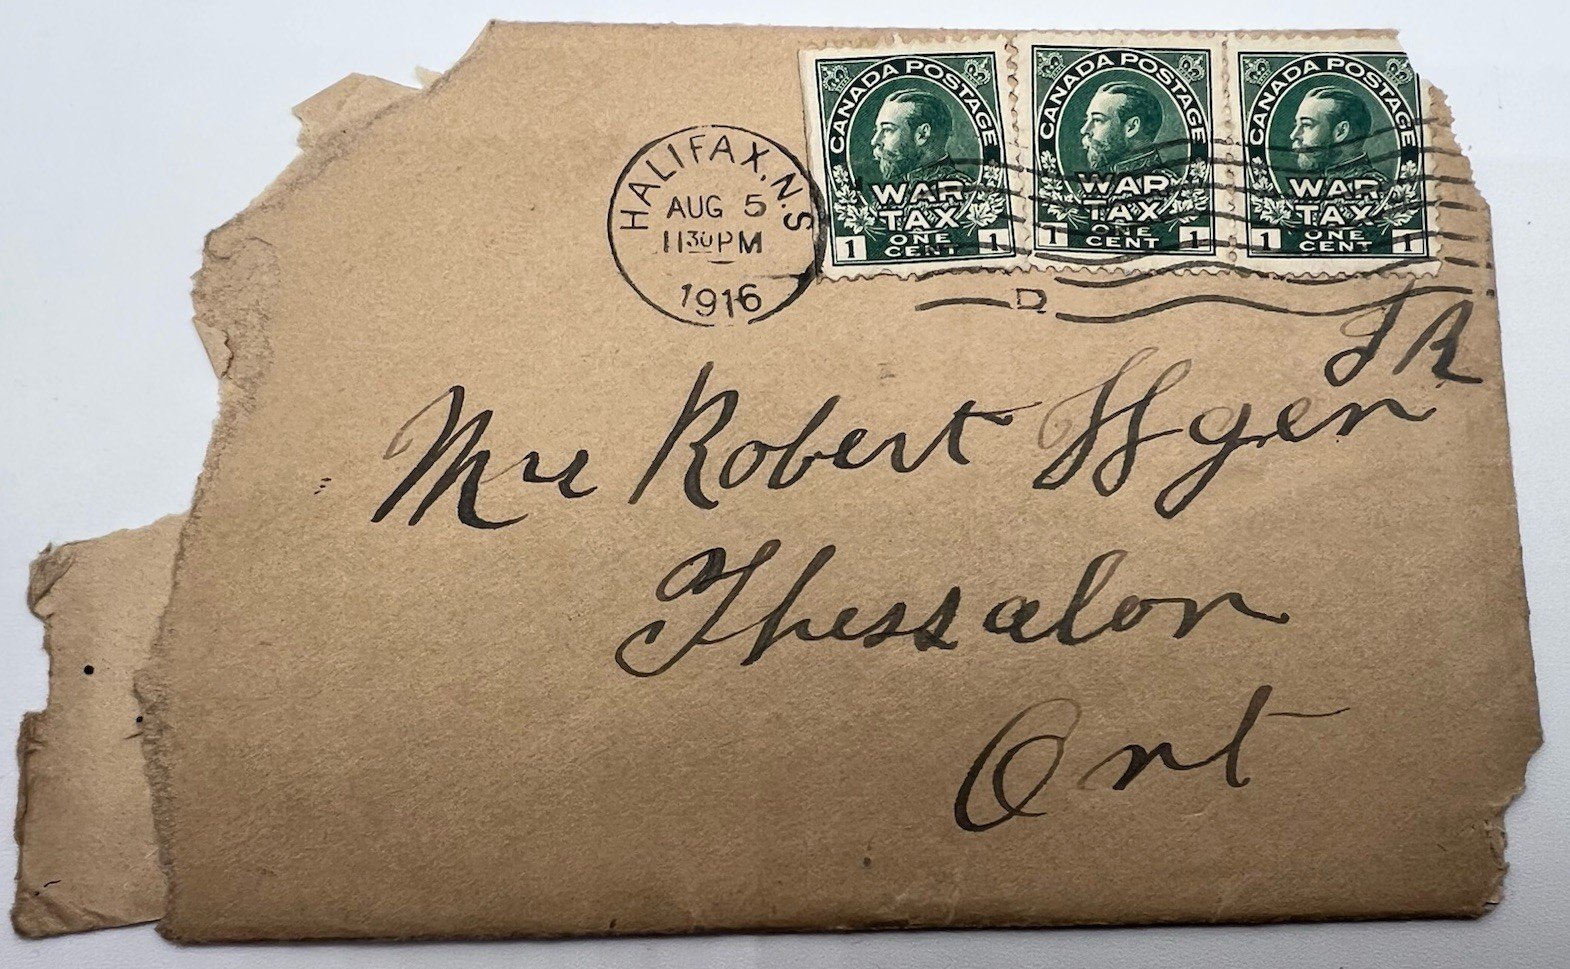 CANADA POSTAGE
WAR
TAX
1 ONE 1
CENT
CANADA POSTAGE
WAR
TAX
1 ONE 1
CENT
CANADA POSTAGE
WAR
TAX
1 ONE 1
CENT
HALIFAX, N.S
AUG 5
1130PM
1916
D
JR
Robert
Thessalon
Ont